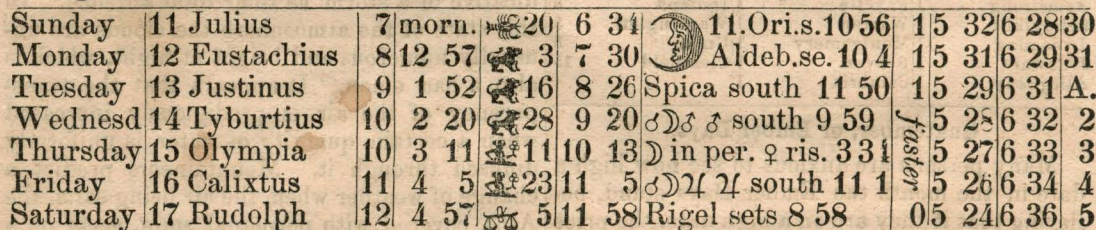 Sunday 11 Julius 7 morn. 20 6 34 11. Ori.s. 10 56 1 5 32 6 28 30
Monday 12 Eustachius 8 12 57 3 7 30 Aldeb.se. 10 4 1 5 31 6 29 31
Tuesday 13 Justinus 9 1 52 16 8 26 Spica south 11 50 1 5 29 6 31 A.
Wednesd 14 Tyburtius 10 2 20 28 9 20 ☌☽♂ ♂ south 9 59 faster 5 28 6 32 2
Thursday 15 Olympia 10 3 11 11 10 13 ☽ in per. ♀ ris. 3 31 5 27 6 33 3
Friday 16 Calixtus 11 4 5 23 11 5 ☌☽♃ ♃ south 11 1 5 26 6 34 4
Saturday 17 Rudolph 12 4 57 ♎ 5 11 58 Rigel sets 8 58 0 5 24 6 36 5